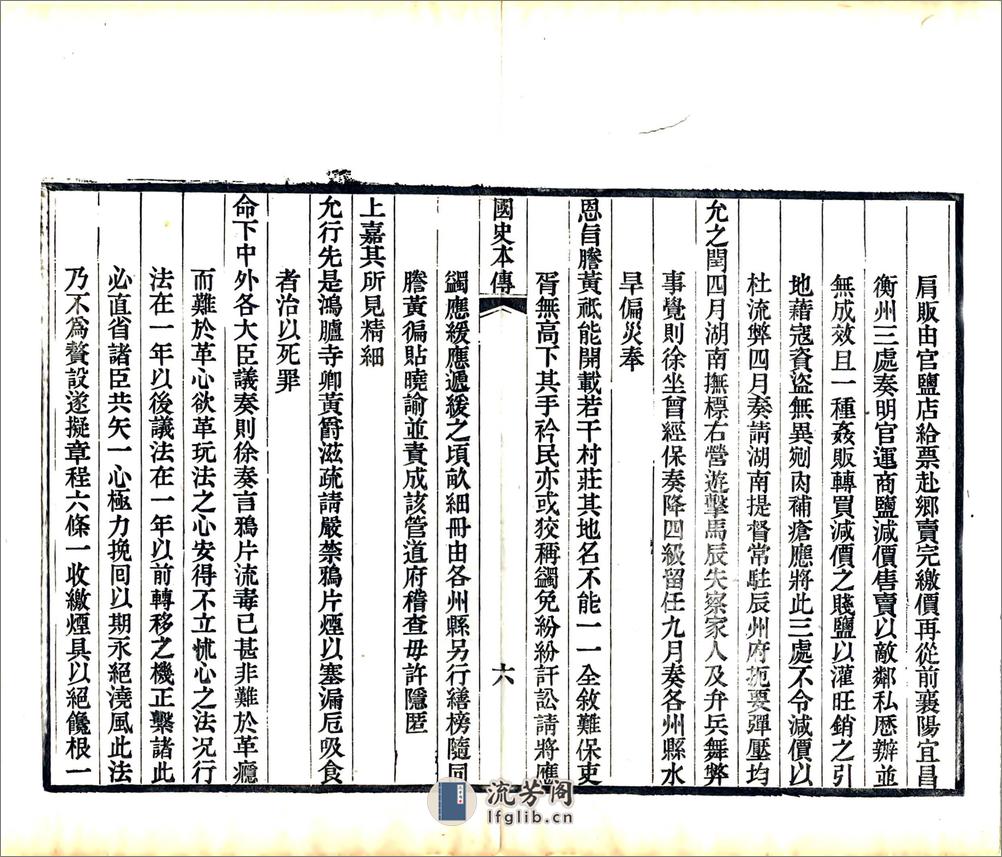 肩販由官鹽店給票赴鄉賣完繳價再從前襄陽宜昌
衡州三處奏明官運商鹽減價售賣以敵鄰私厯辦並
無成效且一種姦販轉買減價之賤鹽以灌旺銷之引
地藉寇資盜無異剜肉補瘡應將此三處不令減價以
杜流弊四月奏請湖南提督常駐辰州府扼要彈壓均
允之閏四月湖南撫標右營遊擊馬辰失察家人及弁兵舞弊
事覺則徐坐曾經保奏降四級留任九月奏各州縣水
旱偏災奉
恩旨謄黃祗能開載若干村莊其地名不能一一全敘難保吏
胥無高下其手衿民亦或狡稱蠲免紛紛訐訟請將應
國史本傳
六
蠲應緩應遞緩之頃畝細冊由各州縣另行繕榜隨同
謄黃徧貼曉諭並責成該管道府稽查毋許隱匿
上嘉其所見精細
允行先是鴻臚寺卿黃爵滋疏請嚴禁鴉片煙以塞漏卮吸食
者治以死罪
命下中外各大臣議奏則徐奏言鴉片流毒已甚非難於革癮
而難於革心欲革玩法之心安得不立怵心之法況行
法在一年以後議法在一年以前轉移之機正繫諸此
必直省諸臣共矢一心極力挽回以期永絕澆風此法
乃不為贅設遂擬章程六條一收繳煙具以絕饞根一
流芳阁
lfglib.cn